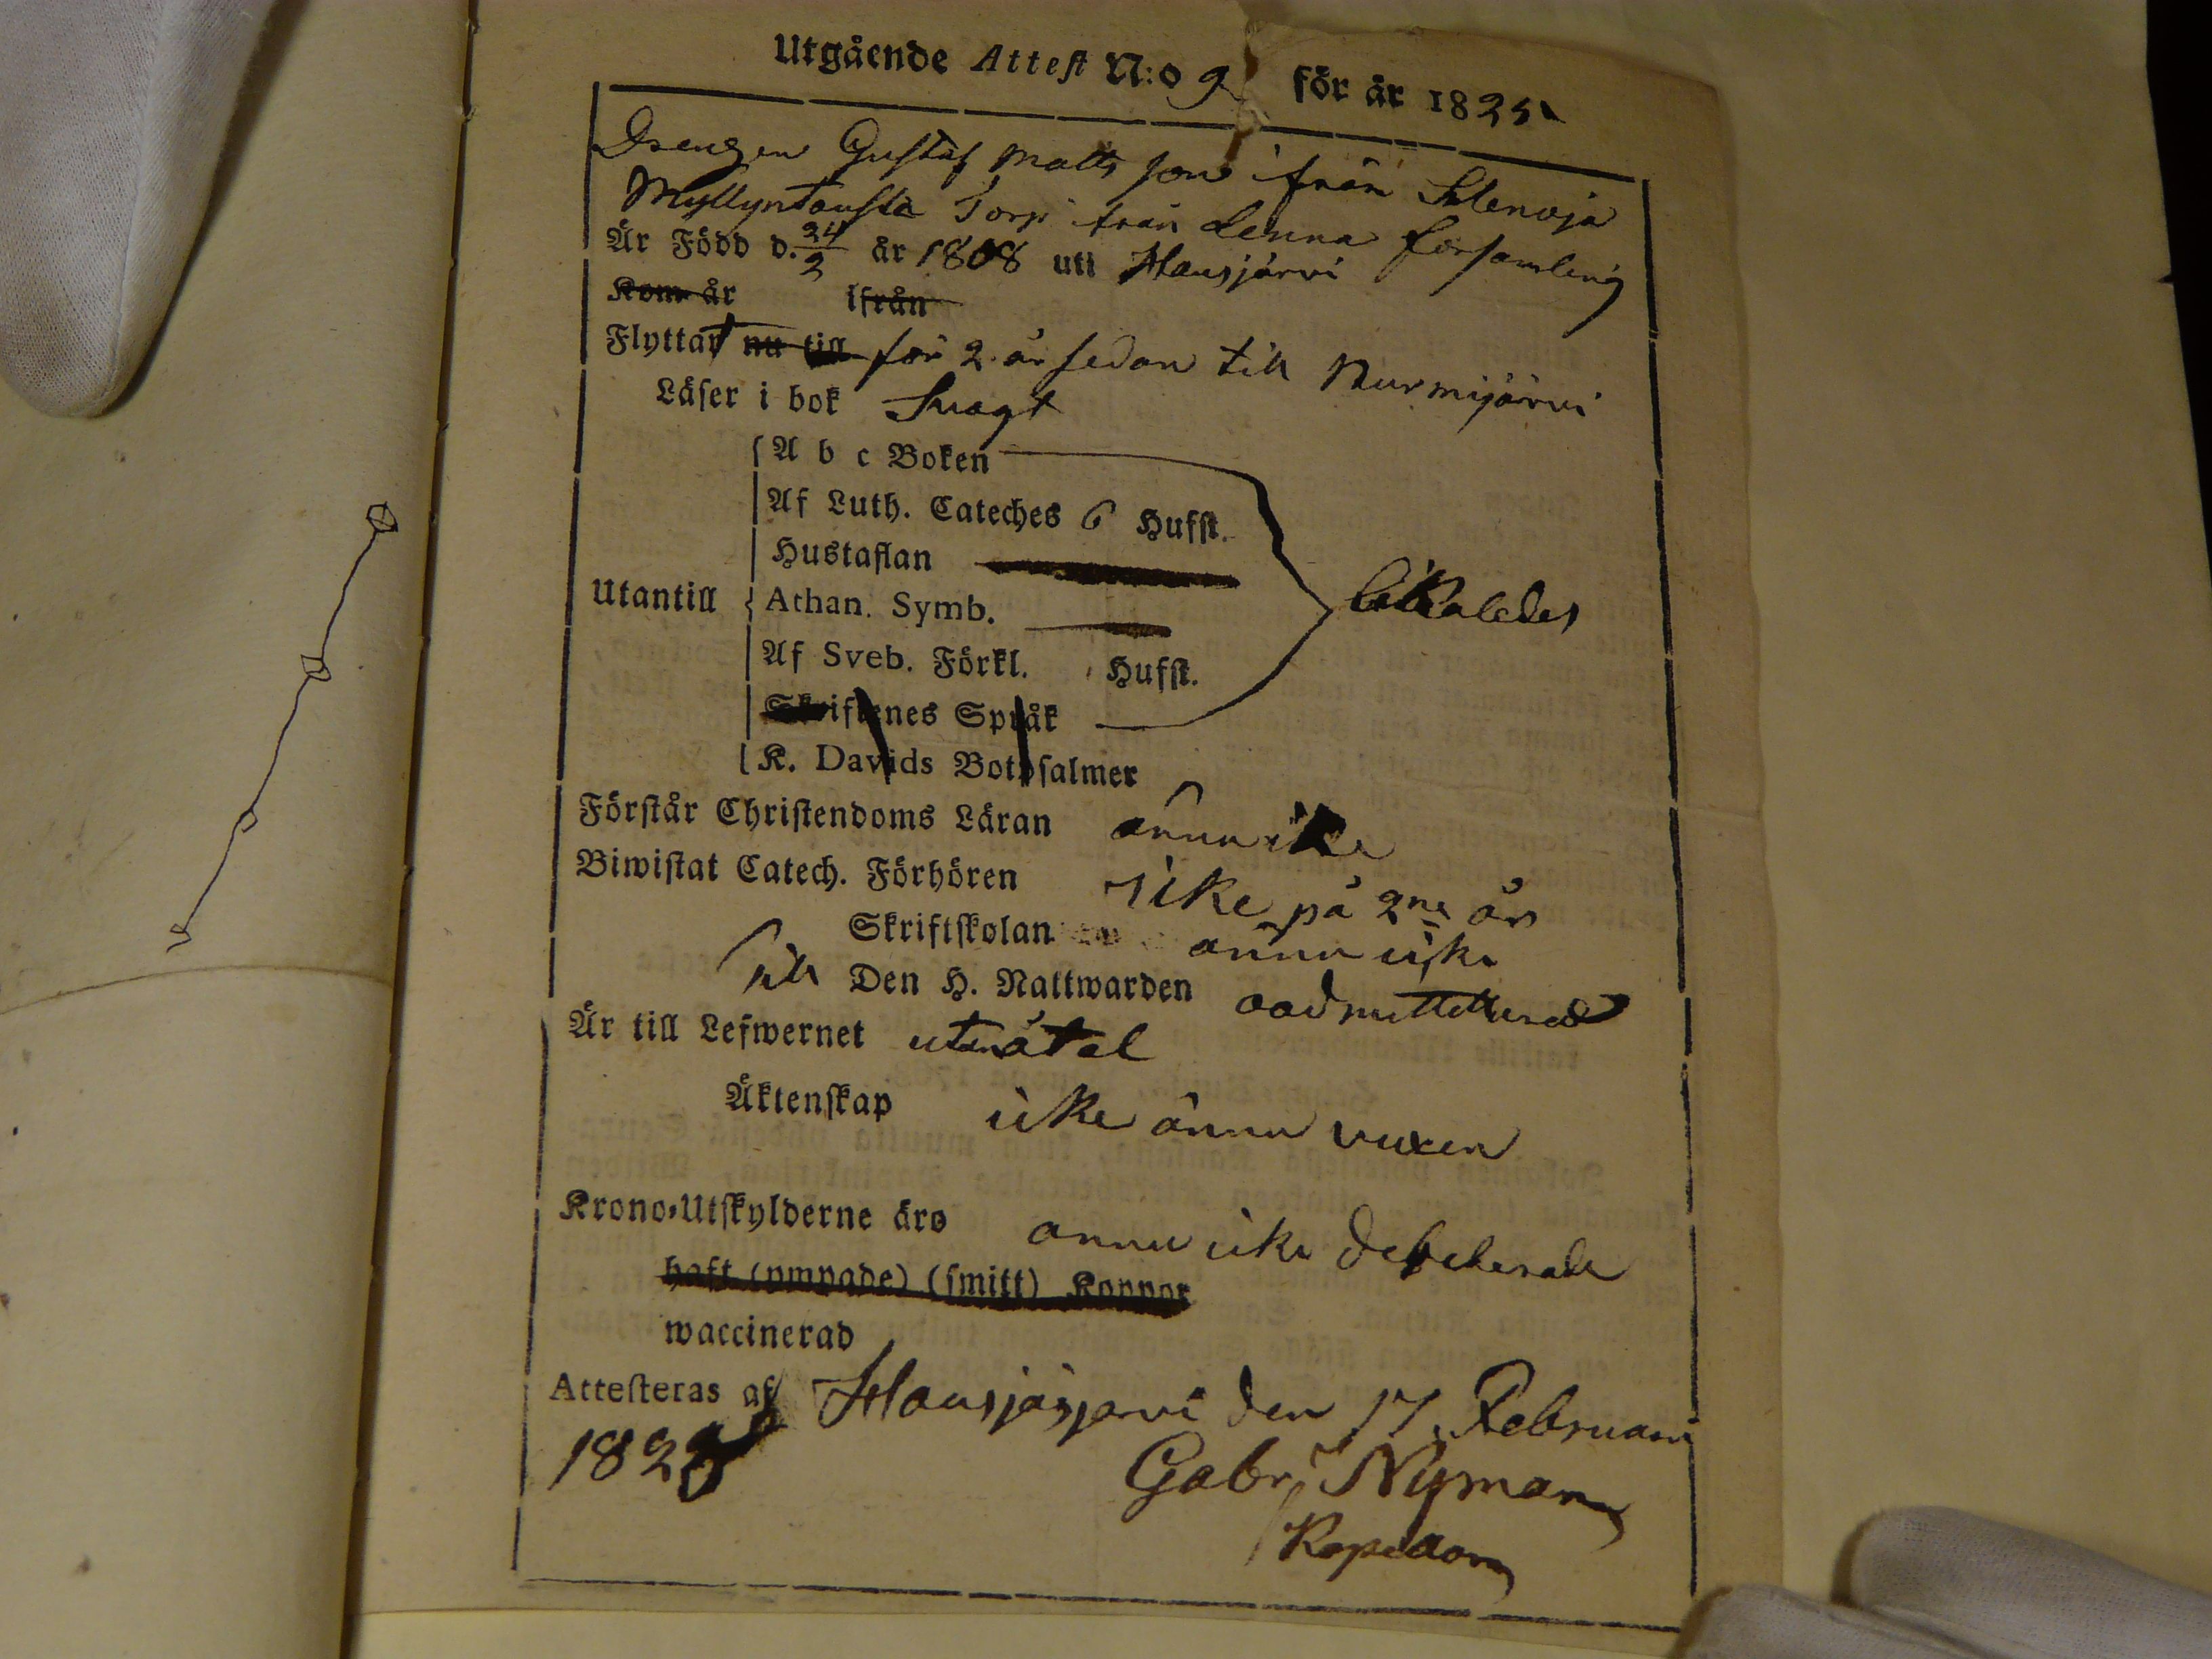 Utgående Attest N:o 9 för år 1825
Drengen Gustaf Matts son ifrån
Myllyntausta Torp från denna församling
Är Född d. 24/2 år 1808 uti Hausjärvi
Kom år ifrån
Flyttat nu till för 2 år sedan till Nurmijärvi
Läser i bok Svagt
A b c Boken
Af Luth. Cateches 6 Hufst.
Hustaflan
Utantill Athan. Symb. likaledes
Af Sveb. Förkl. Hufst.
Skriftenes Språk
K. Davids Botpsalmer
Förstår Christendoms Läran ännu ike
Biwistat Catech. Förhören ike på 2ne år
Skriftskolan ännu ike
till Den H. Nattwarden oadmitterad
Är till Lefwernet otadel
Äktenskap icke ännu vuxen
Krono-Utskylderne äro ännu icke debiterade
haft (ympade) (smitt) Koppor
waccinerad
Attesteras af Hausjärjärvi den 17 Februari
1825 Gabr. Nyman
Kapellan